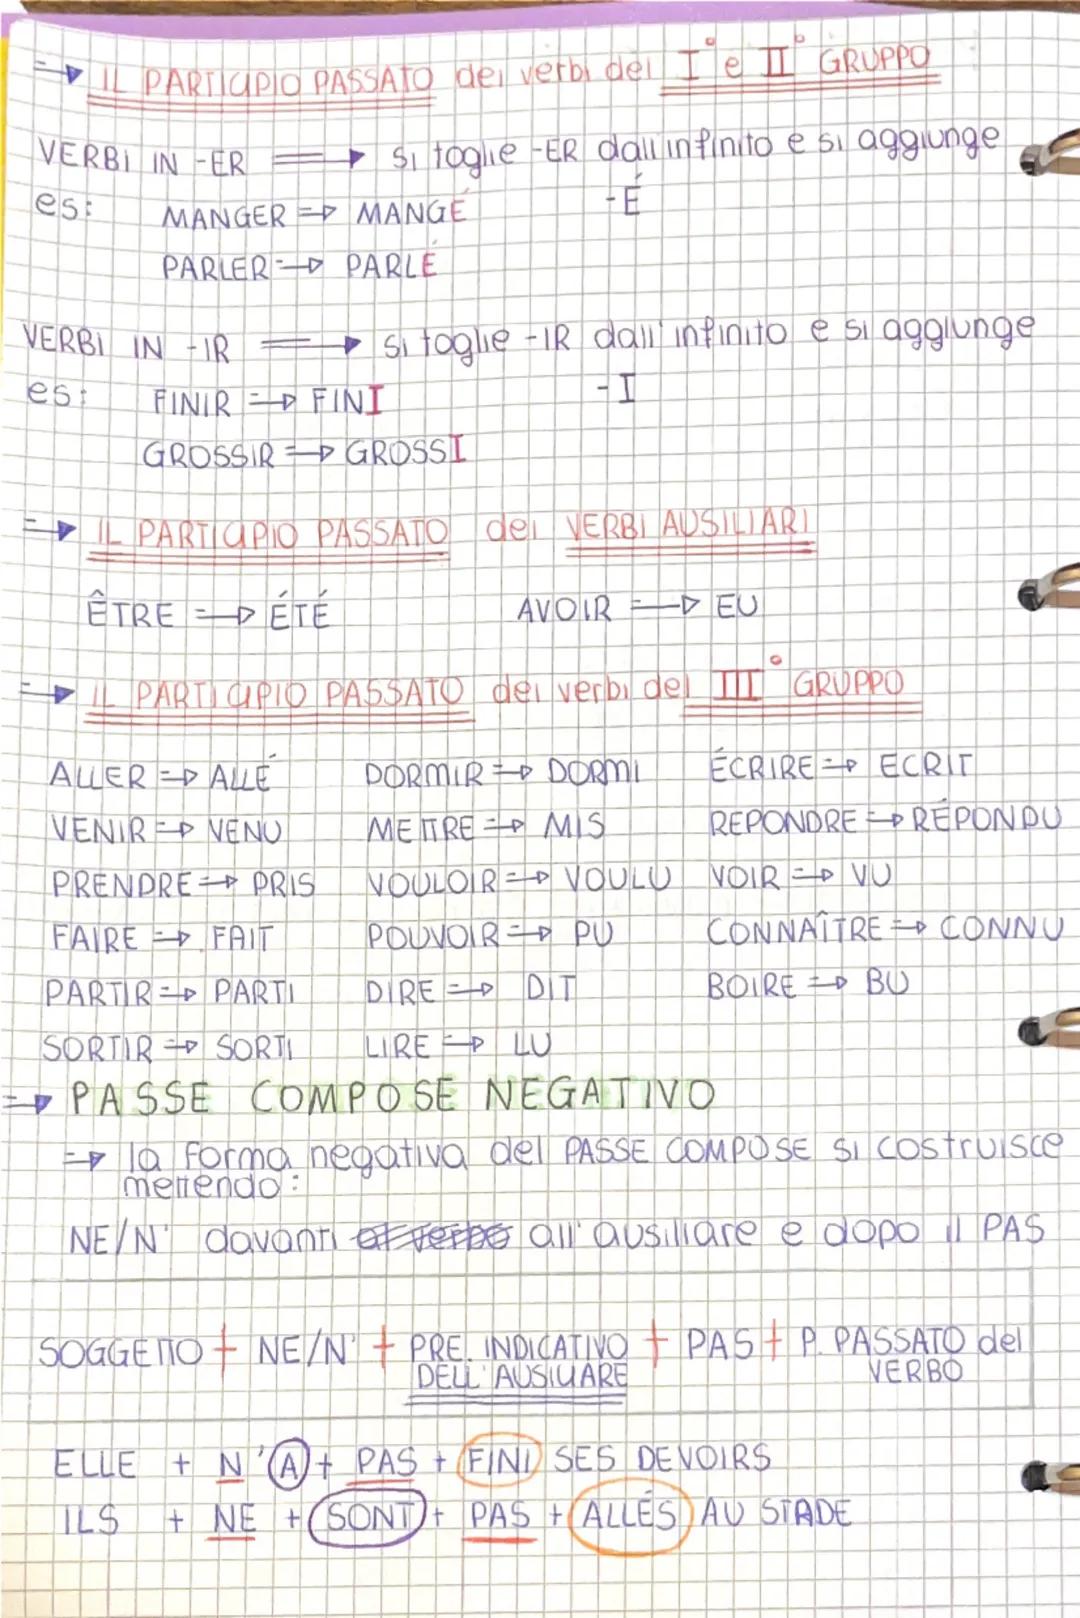 IL PARTICIPIO PASSATO dei verbi del I° e II° GRUPPO
VERBI IN -ER ⇒ si toglie -ER dall'infinito e si aggiunge
-É
es: MANGER ⇒ MANGÉ
PARLER ⇒ PARLÉ
VERBI IN -IR ⇒ si toglie -IR dall'infinito e si aggiunge
-I
es: FINIR ⇒ FINI
GROSSIR ⇒ GROSSI
⇒ IL PARTICIPIO PASSATO dei VERBI AUSILIARI
ÊTRE ⇒ ÉTÉ AVOIR ⇒ EU
⇒ IL PARTICIPIO PASSATO dei verbi del III° GRUPPO
ALLER ⇒ ALLÉ DORMIR ⇒ DORMI ÉCRIRE ⇒ ECRIT
VENIR ⇒ VENU METTRE ⇒ MIS REPONDRE ⇒ RÉPONDU
PRENDRE ⇒ PRIS VOULOIR ⇒ VOULU VOIR ⇒ VU
FAIRE ⇒ FAIT POUVOIR ⇒ PU CONNAÎTRE ⇒ CONNU
PARTIR ⇒ PARTI DIRE ⇒ DIT BOIRE ⇒ BU
SORTIR ⇒ SORTI LIRE ⇒ LU
⇒ PASSE COMPOSE NEGATIVO
⇒ la forma negativa del PASSE COMPOSE si costruisce
mettendo:
NE/N' davanti all'ausiliare e dopo il PAS
SOGGETTO + NE/N' + PRE. INDICATIVO + PAS + P. PASSATO del
DELL'AUSILIARE VERBO
ELLE + N'A + PAS + FINI SES DEVOIRS
ILS + NE + SONT + PAS + ALLÉS AU STADE